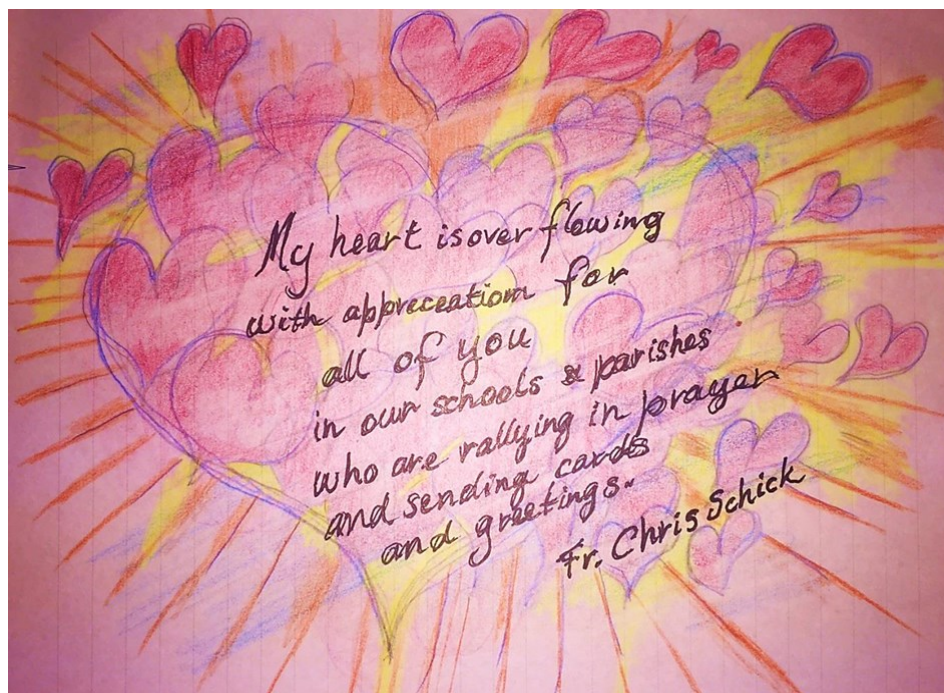 My heart is over flowing
with appreceation for
all of you
in our schools & parishes
who are rallying in prayer
and sending cards
and greetings.
Fr. Chris Schick